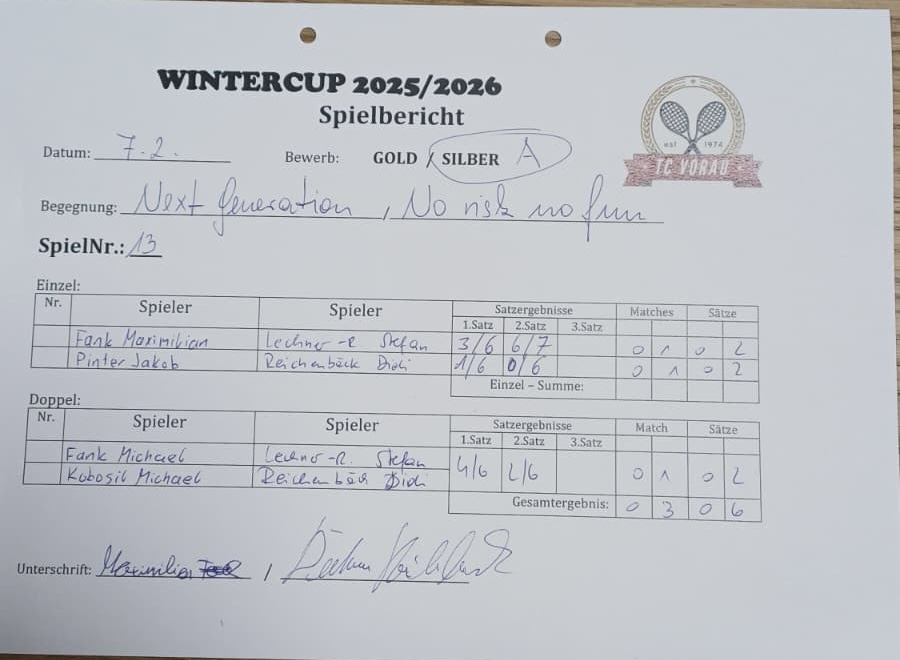 WINTERCUP 2025/2026
Spielbericht
Datum: 7.2. Bewerb: GOLD / SILBER A
est 1974
TC VORAU
Begegnung: Next Generation, No risk no fun
SpielNr.: 13
Einzel:
Nr. Spieler Spieler Satzergebnisse Matches Sätze
1.Satz 2.Satz 3.Satz
Fank Maximilian Lechner-R Stefan 3/6 6/7 0 1 0 2
Pinter Jakob Reichenbäck Didi 1/6 0/6 0 1 0 2
Einzel – Summe:
Doppel:
Nr. Spieler Spieler Satzergebnisse Match Sätze
1.Satz 2.Satz 3.Satz
Fank Michael Lechner-R. Stefan 4/6 2/6 0 1 0 2
Kobosil Michael Reichenbäck Didi
Gesamtergebnis: 0 3 0 6
Unterschrift: Maximilian /